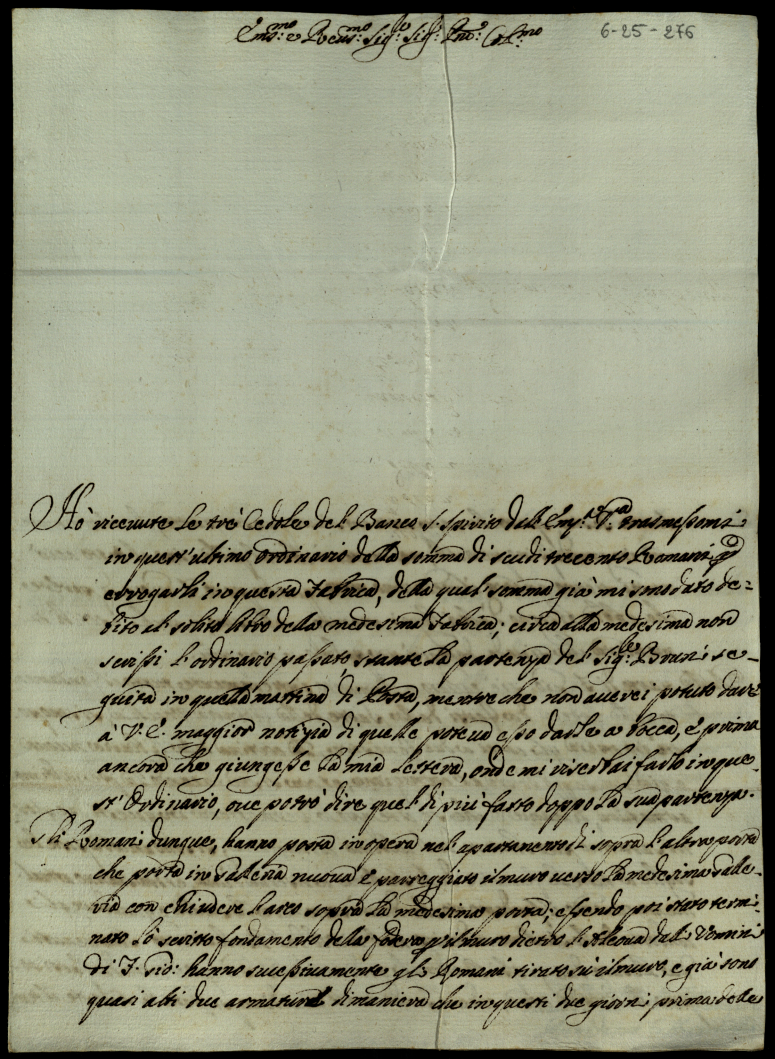 6-25-276
Em:mo e Reu:mo Sig:re Sig:re Pne: Col:mo
Hò riceuute le trè Cedole del Banco S. Spirito dall' Em: V:ra trasmessomi
in quest' ultimo ordinario della somma di scudi trecento Romani p
errogarli in questa Fabrica, della qual somma già mi sono dato de=
bito al solito libro della medesima Fabrica; circa alla medesima non
scrissi l'ordinario passato, stante la partenza del Sig:re Bruni se=
guita in quella mattina di Posta, mentre che non auerei potuto dare
à V. E. maggior notizia di quelle poteua esso darle a bocca, e prima
ancora che giungesse la mia lettera, onde mi riserbai farlo in que=
st' Ordinario, oue potrò dire quel di più fatto doppo la sua partenza.
Gli Romani dunque, hanno posta in opera nel apartamento di sopra l'altra porta
che porta in Galleria nuoua e pareggiato il muro uerso la medesima Galle=
ria con chiudere l'arco sopra la medesima porta; essendo poi stato termi=
nato lo scritto fondamento della fodera p il muro dietro l'Alcoua dalli Uomini
di S. Gio: hanno successiuamente gli Romani tirato sù il muro, e già sono
quasi alti due armature dimaniera che in questi due giorni prima delle